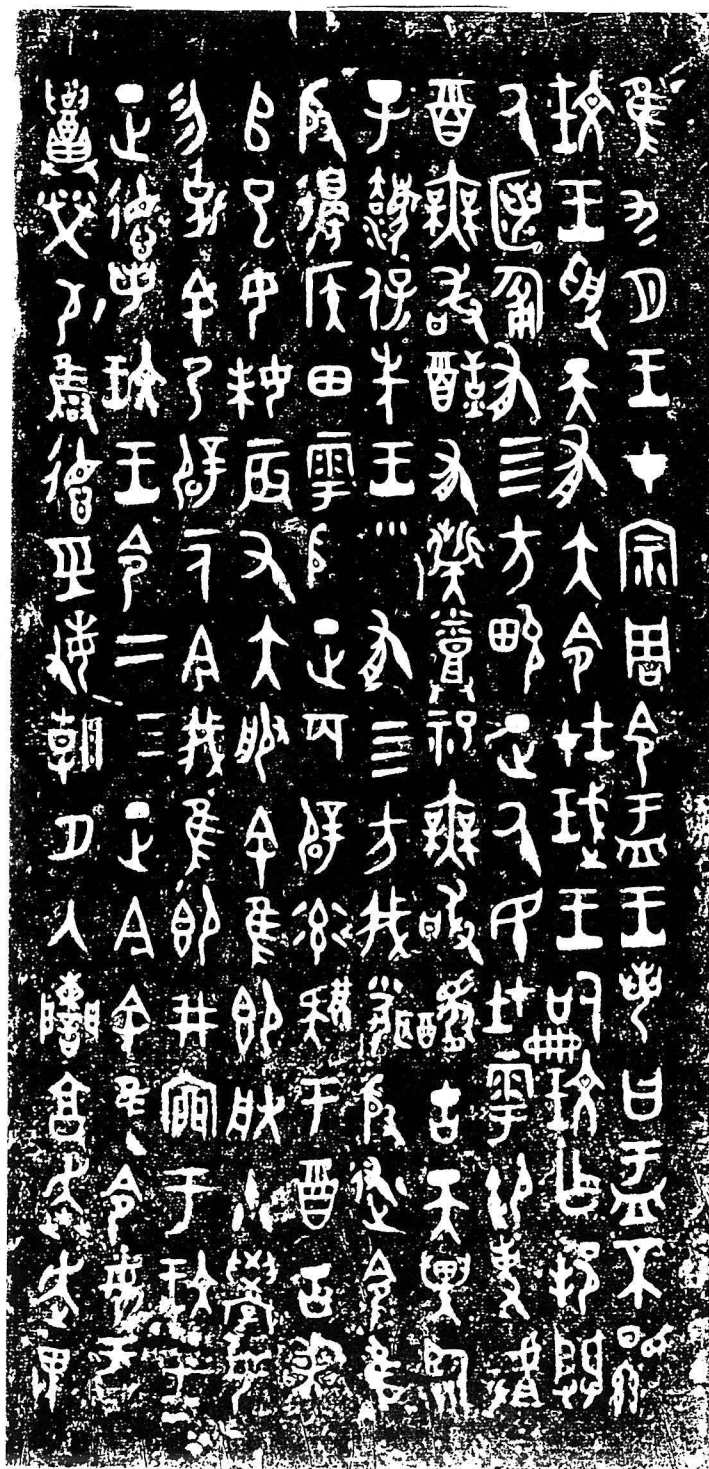 隹九月王才宗周令盂王若曰盂不顯
玟王受天有大令在珷王嗣玟乍邦闢
氒匿匍有四方畯正氒民在雩御事𠭯
酉無敢酖有髭烝祀無敢䤔古天異臨
子灋保先王有四方我聞殷述令隹
殷邊侯田雩殷正百辟率肄于酉古喪
𠂤巳女妹辰又大服余隹即朕小學女
勿𠟭余乃辟一人今我隹即井㐭于玟王
正德若玟王令二三正今余隹令女盂
召榮敬雍德巠敏朝夕入讕享奔走畏